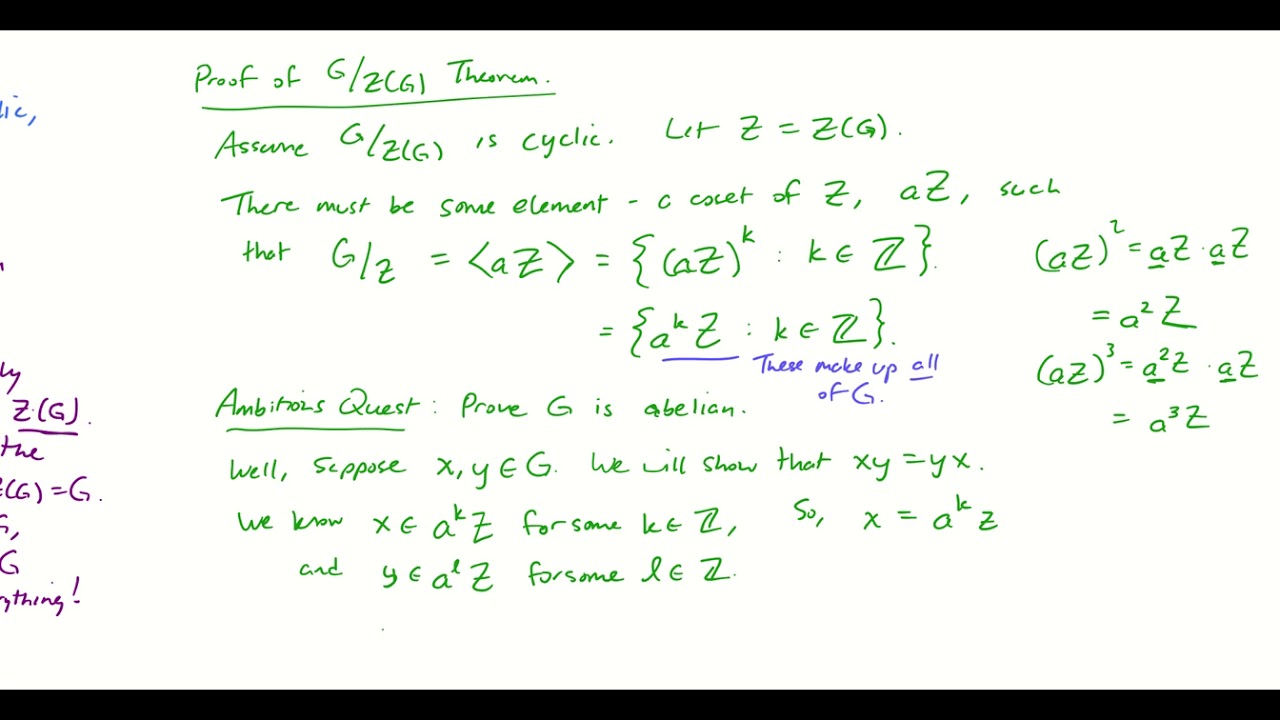 Proof of G/Z(G) Theorem.
lic,
Assume G/Z(G) is cyclic. Let Z = Z(G).
There must be some element - a coset of Z, aZ, such
that G/Z = ⟨aZ⟩ = {(aZ)^k : k ∈ ℤ}.
= {a^k Z : k ∈ ℤ}.
These make up all
of G.
(aZ)^2 = aZ · aZ
= a^2 Z
(aZ)^3 = a^2 Z · aZ
= a^3 Z
Ambitious Quest: Prove G is abelian.
Well, suppose x, y ∈ G. We will show that xy = yx.
We know x ∈ a^k Z for some k ∈ ℤ, So, x = a^k z
and y ∈ a^l Z for some l ∈ ℤ.
ly
Z(G).
the
Z(G) = G.
G,
G
rything!